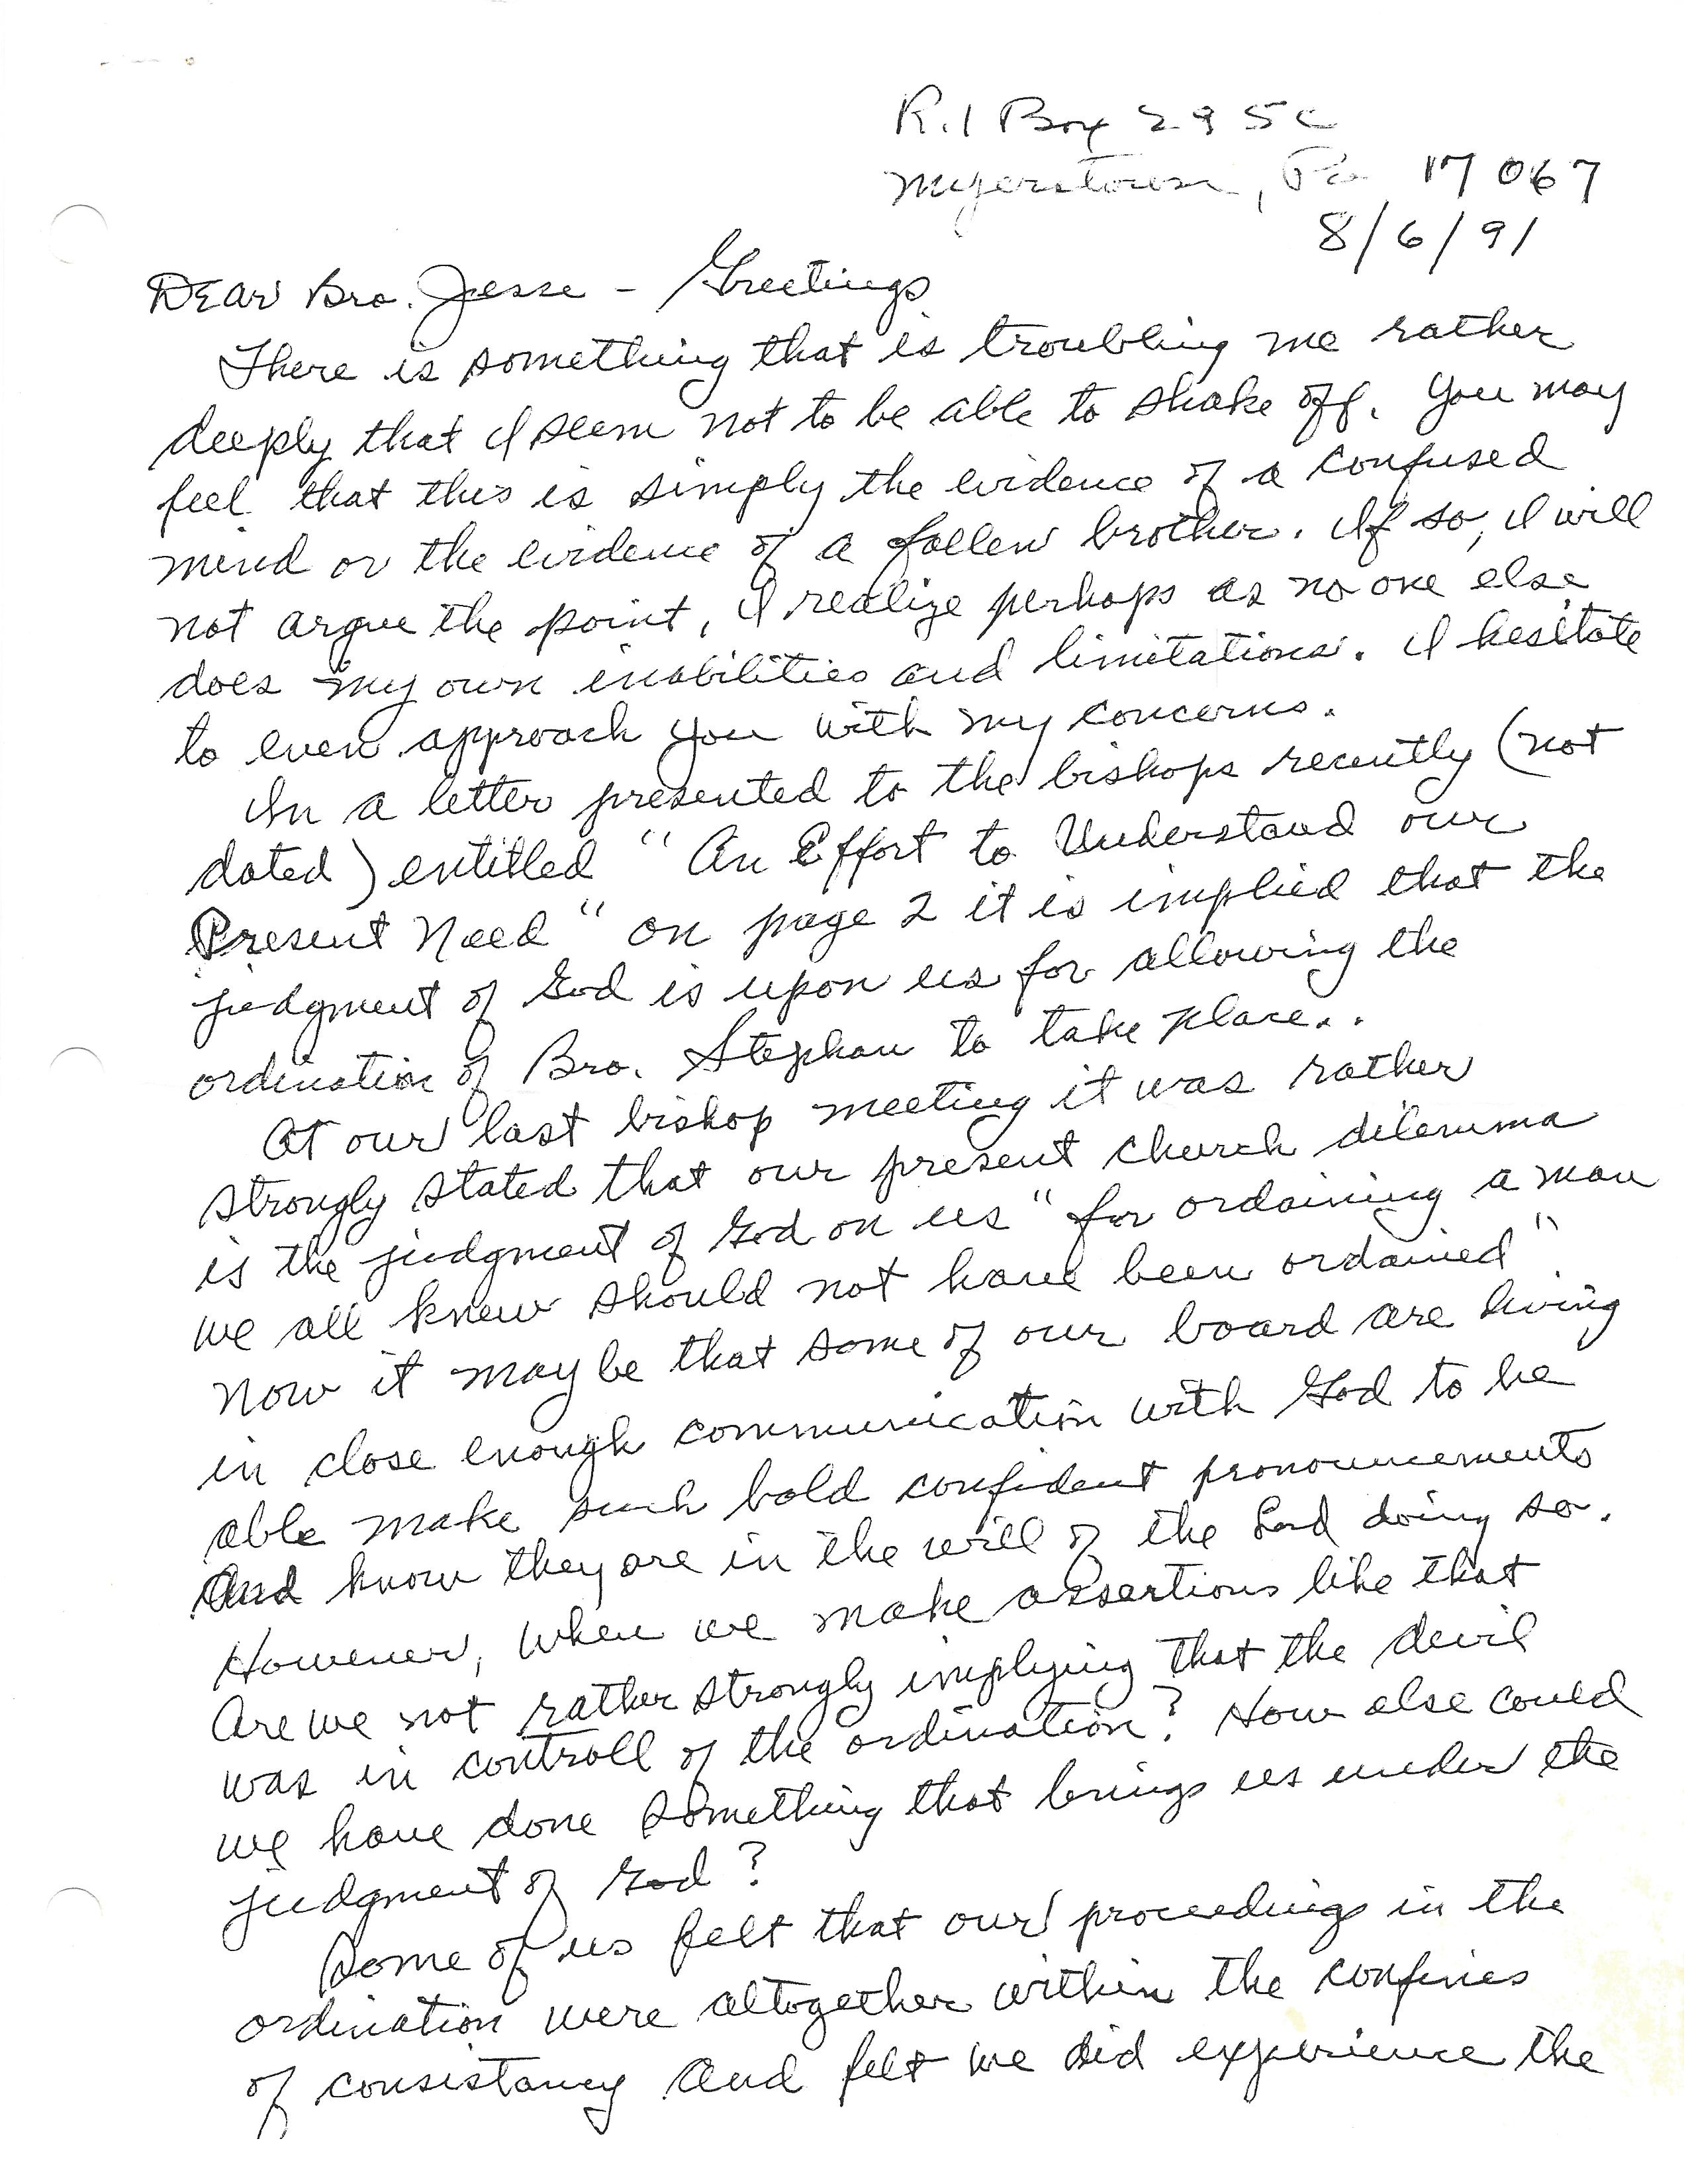 R.1 Box 295C
Myerstown, Pa 17067
8/6/91
Dear Bro. Jesse - Greetings
There is something that is troubling me rather
deeply that I seem not to be able to shake off. You may
feel that this is simply the evidence of a confused
mind or the evidence of a fallen brother. If so, I will
not argue the point, I realize perhaps as no one else
does my own inabilities and limitations. I hesitate
to even approach you with my concerns.
In a letter presented to the bishops recently (not
dated) entitled "An Effort to Understand our
Present Need" on page 2 it is implied that the
judgment of God is upon us for allowing the
ordination of Bro. Stephan to take place..
At our last bishop meeting it was rather
strongly stated that our present church dilemma
is the judgment of God on us "for ordaining a man
we all knew should not have been ordained".
Now it may be that some of our board are living
in close enough communication with God to be
able make such bold confident pronouncements
And know they are in the will of the Lord doing so.
However, when we make assertions like that
Are we not rather strongly implying that the devil
was in controll of the ordination? How else could
we have done something that brings us under the
judgment of God?
Some of us felt that our proceedings in the
ordination were altogether within the confines
of consistancy And felt we did experience the